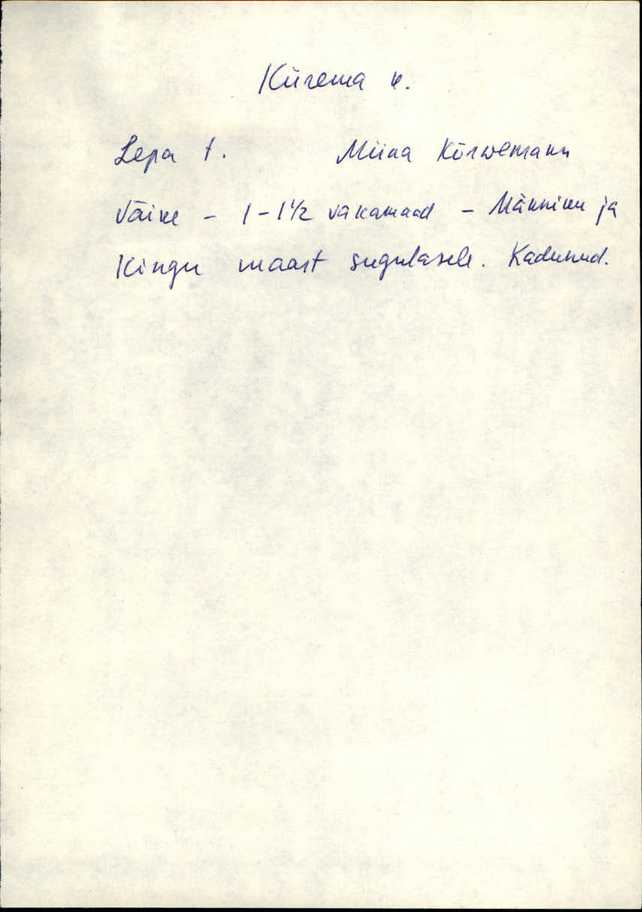 Kiirema k.
Lepa t. Miina Kõrwemann
Väike - 1-1½ vakamaad - Männiku ja
Kingu maast sugulasele. Kadunud.